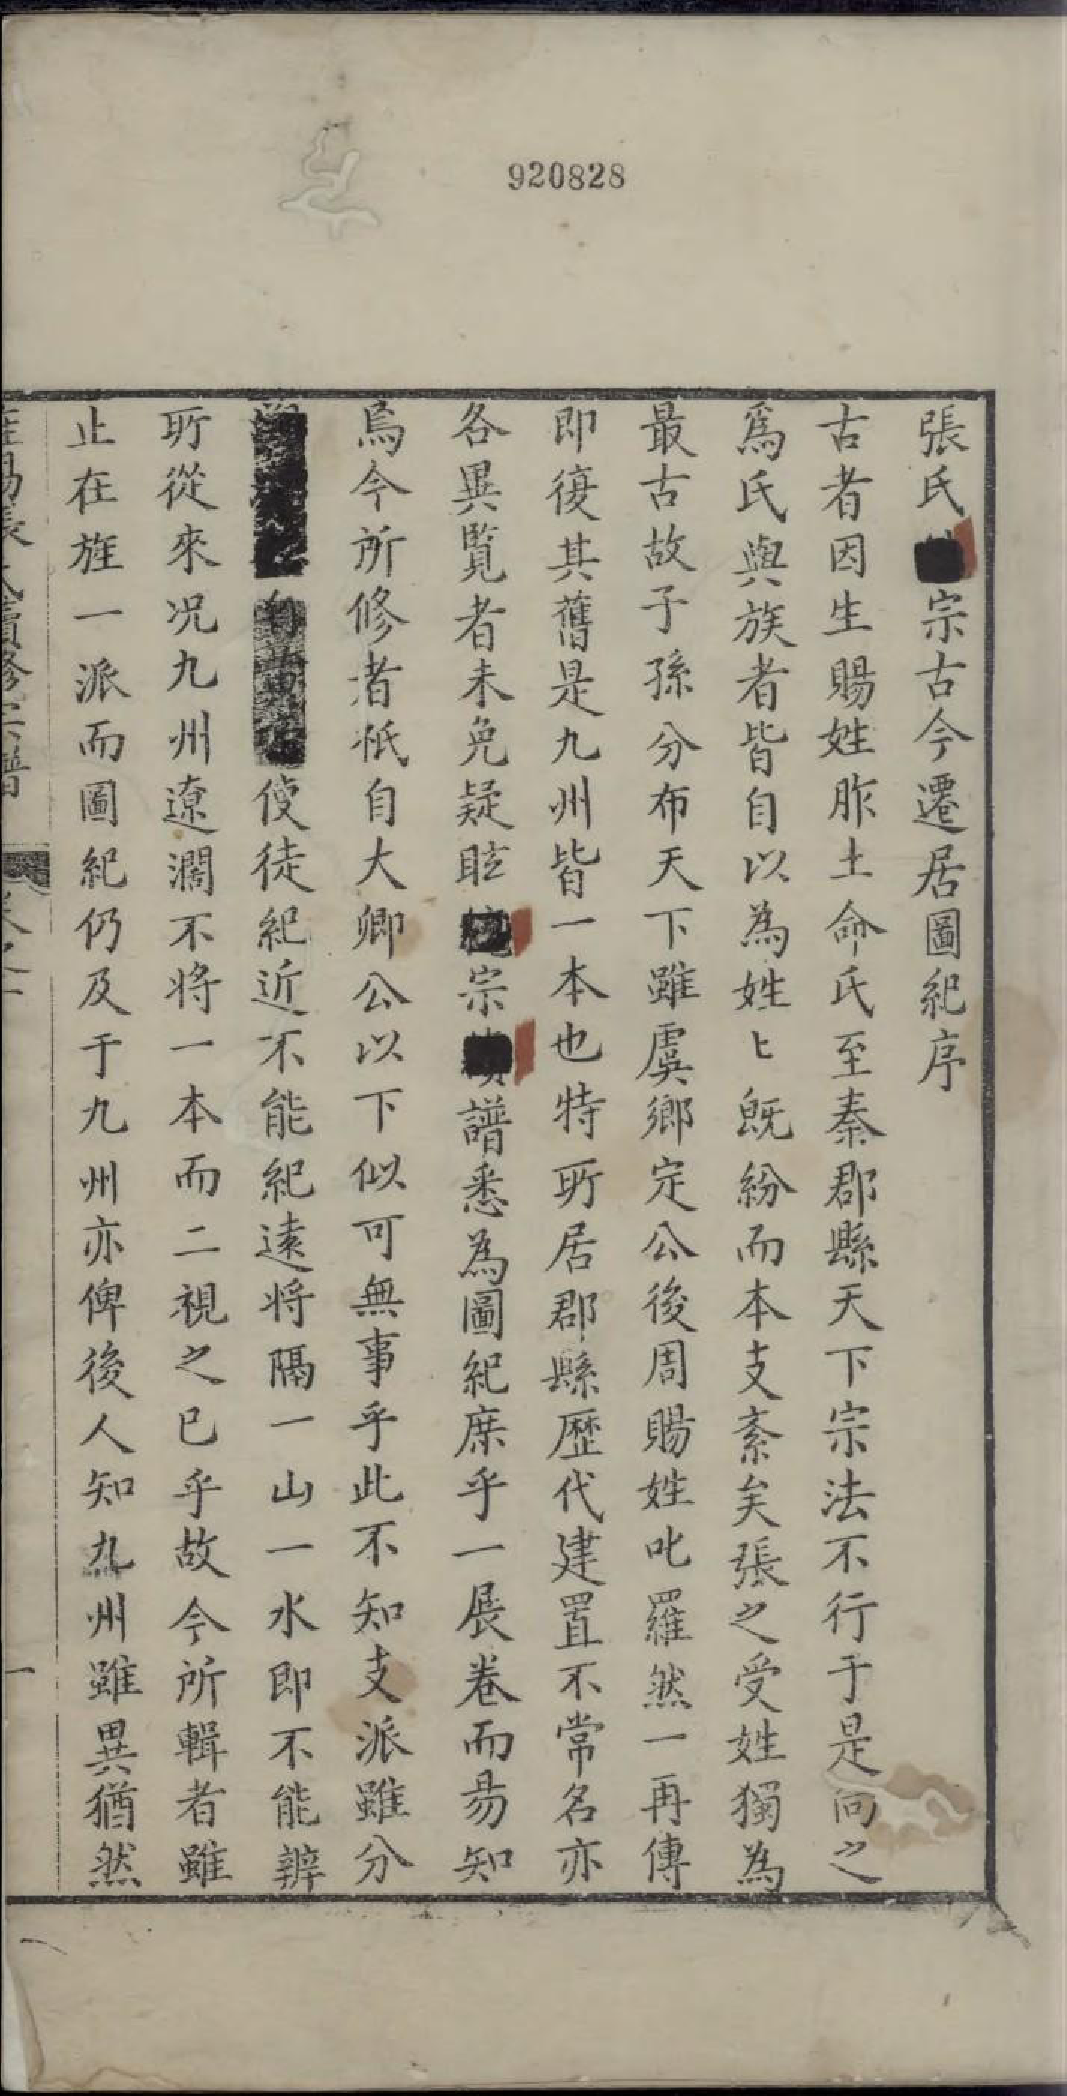 920828
張氏宗古今遷居圖紀序
古者因生賜姓胙土命氏至秦郡縣天下宗法不行于是向之
爲氏與族者皆自以為姓〻既紛而本支紊矣張之受姓獨為
最古故子孫分布天下雖虞鄉定公後周賜姓叱羅然一再傳
即復其舊是九州皆一本也特所居郡縣歷代建置不常名亦
各異覽者未免疑眩宗譜悉為圖紀庶乎一展卷而昜知
焉今所修者秖自大卿公以下似可無事乎此不知支派雖分
使徒紀近不能紀遠將隔一山一水即不能辨
所從來况九州遼濶不將一本而二視之已乎故今所輯者雖
止在旌一派而圖紀仍及于九州亦俾後人知九州雖異猶然
張氏續修宗譜 卷之一 一